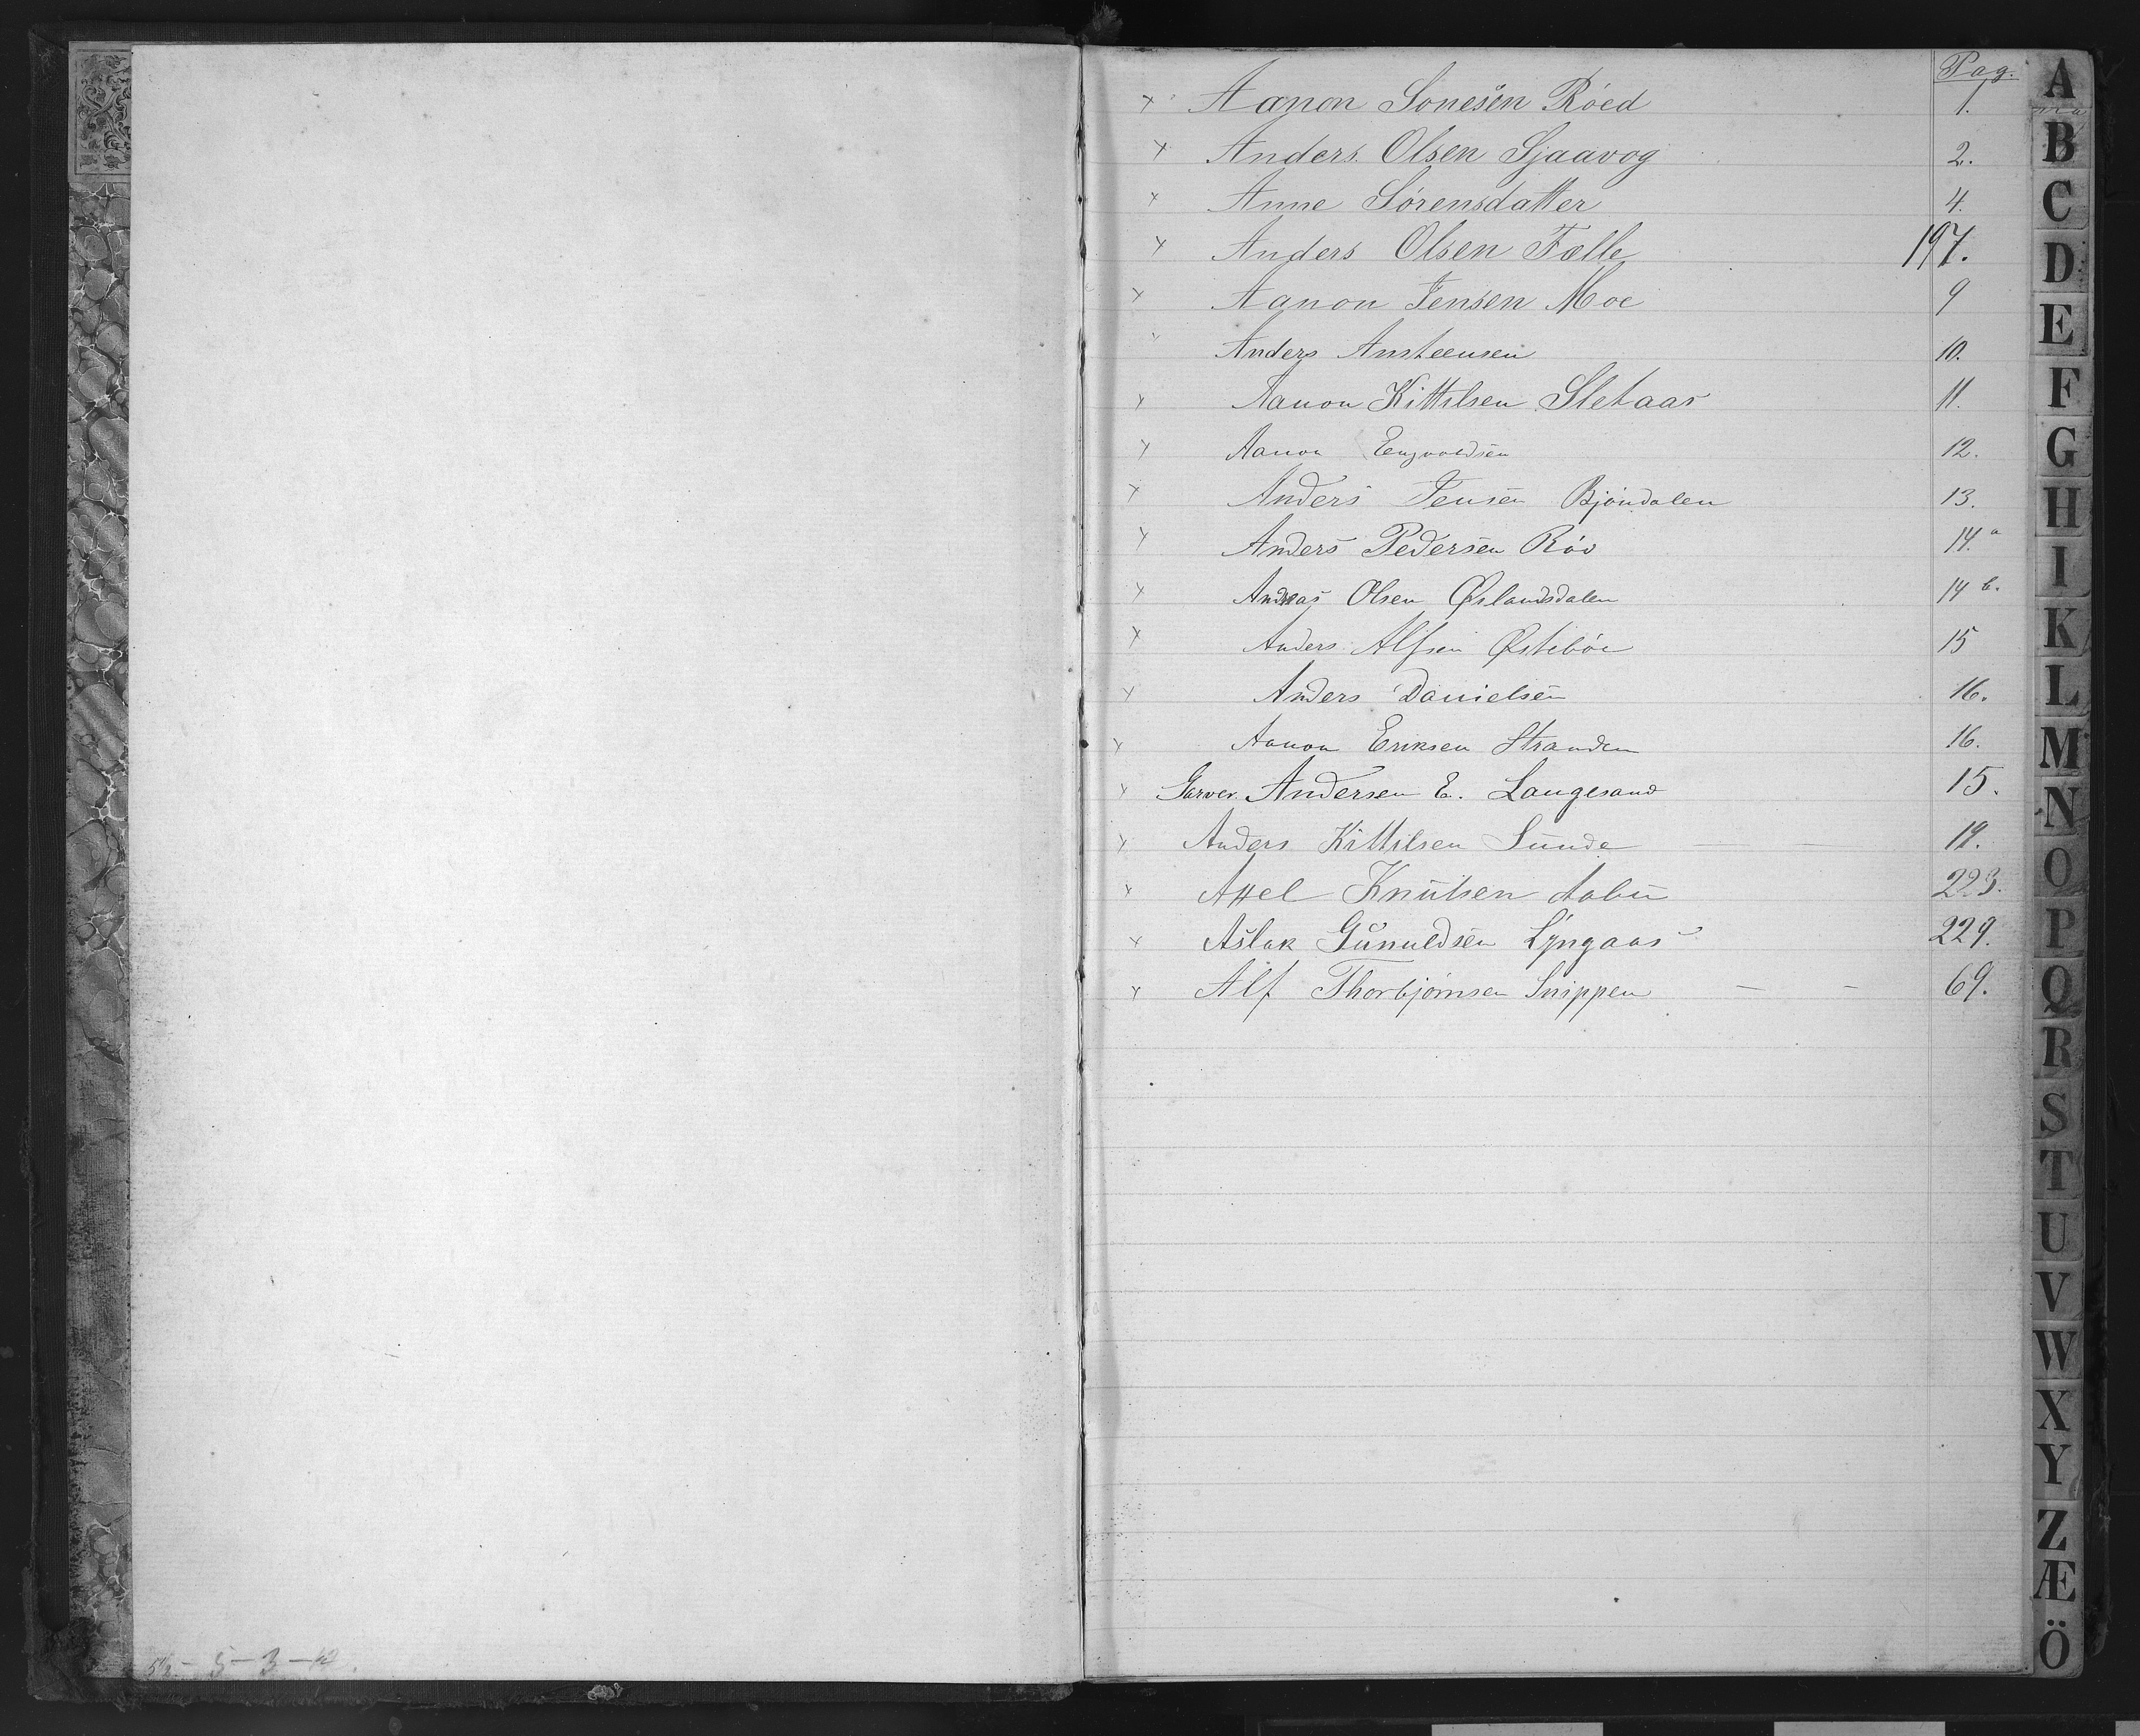 Pag.
× Aanon Sonesen Röed 1.
× Anders Olsen Sjaavog 2.
× Anne Sörensdatter 4.
× Anders Olsen Fælle 197.
× Aanon Jensen Moe 9
Anders Ansteensen 10.
× Aanon Kittilsen Sletaas 11.
× Aanon 12.
× Anders Jensen Bjöndalen 13.
× Anders Pedersen Röd 14.a
× Andreas Olsen Øslandsdalen 14 b.
× Anders Alfsen Østeböe 15
× Anders Danielsen 16.
× Aanon Eriksen Stranden 16.
× Garver Andersen E. Laugesand 15.
× Anders Kittilsen Sunde — — 19.
× Axel Knutsen Aabu 223.
× Aslak Gunuldsen Lyngaas 229.
× Alf Thorbjörnsen Snippen — — 69.
A
B
C
D
E
F
G
H
I
K
L
M
N
O
P
Q
R
S
T
U
V
W
X
Y
Z
Æ
Ö